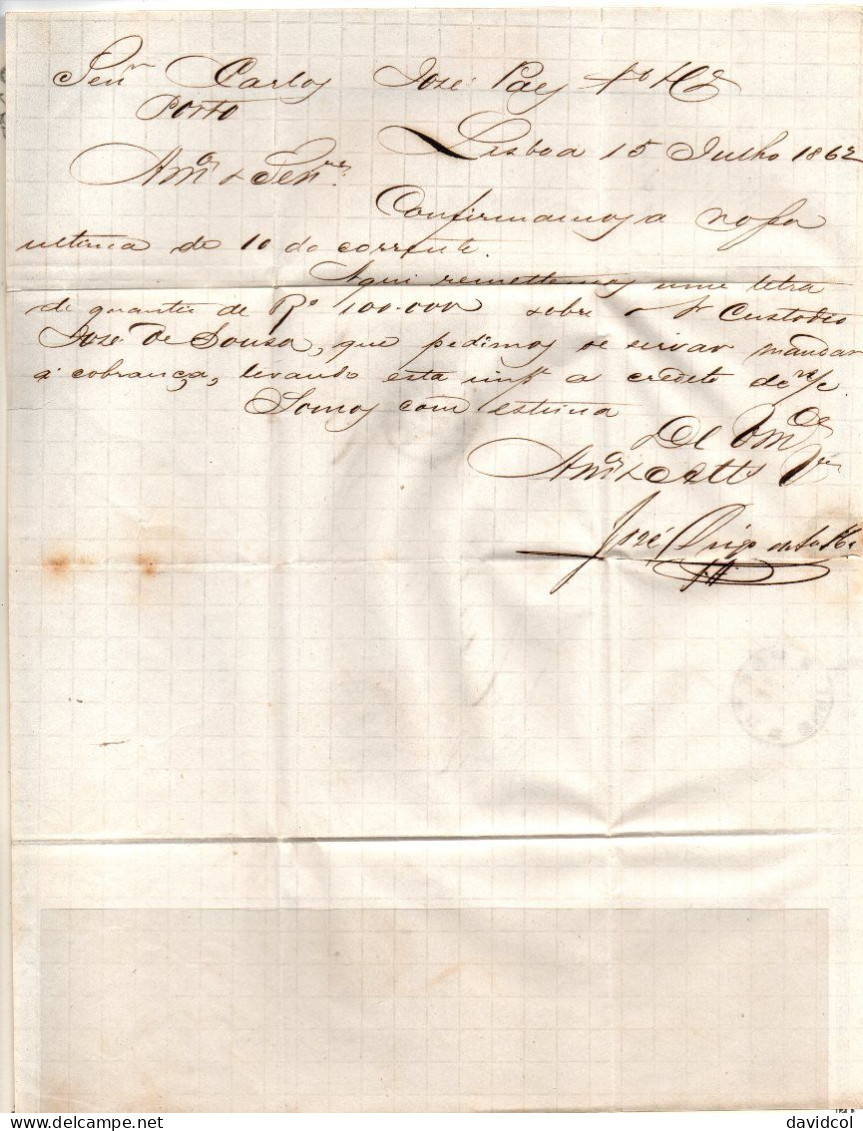 Senr Carlos José Paes
Porto
Lisboa 15 Julho 1862
Amos & Senres
Confirmamos a nossa
ultima de 10 do corrente.
Aqui remettemos uma letra
de quantia de Rs 100.000 sobre o Sr Custodio
José de Sousa, que pedimos se sirvão mandar
á cobrança, levando esta impa a credito de n/c
Somos com estima
De Vmces
Amos
José
davidcol